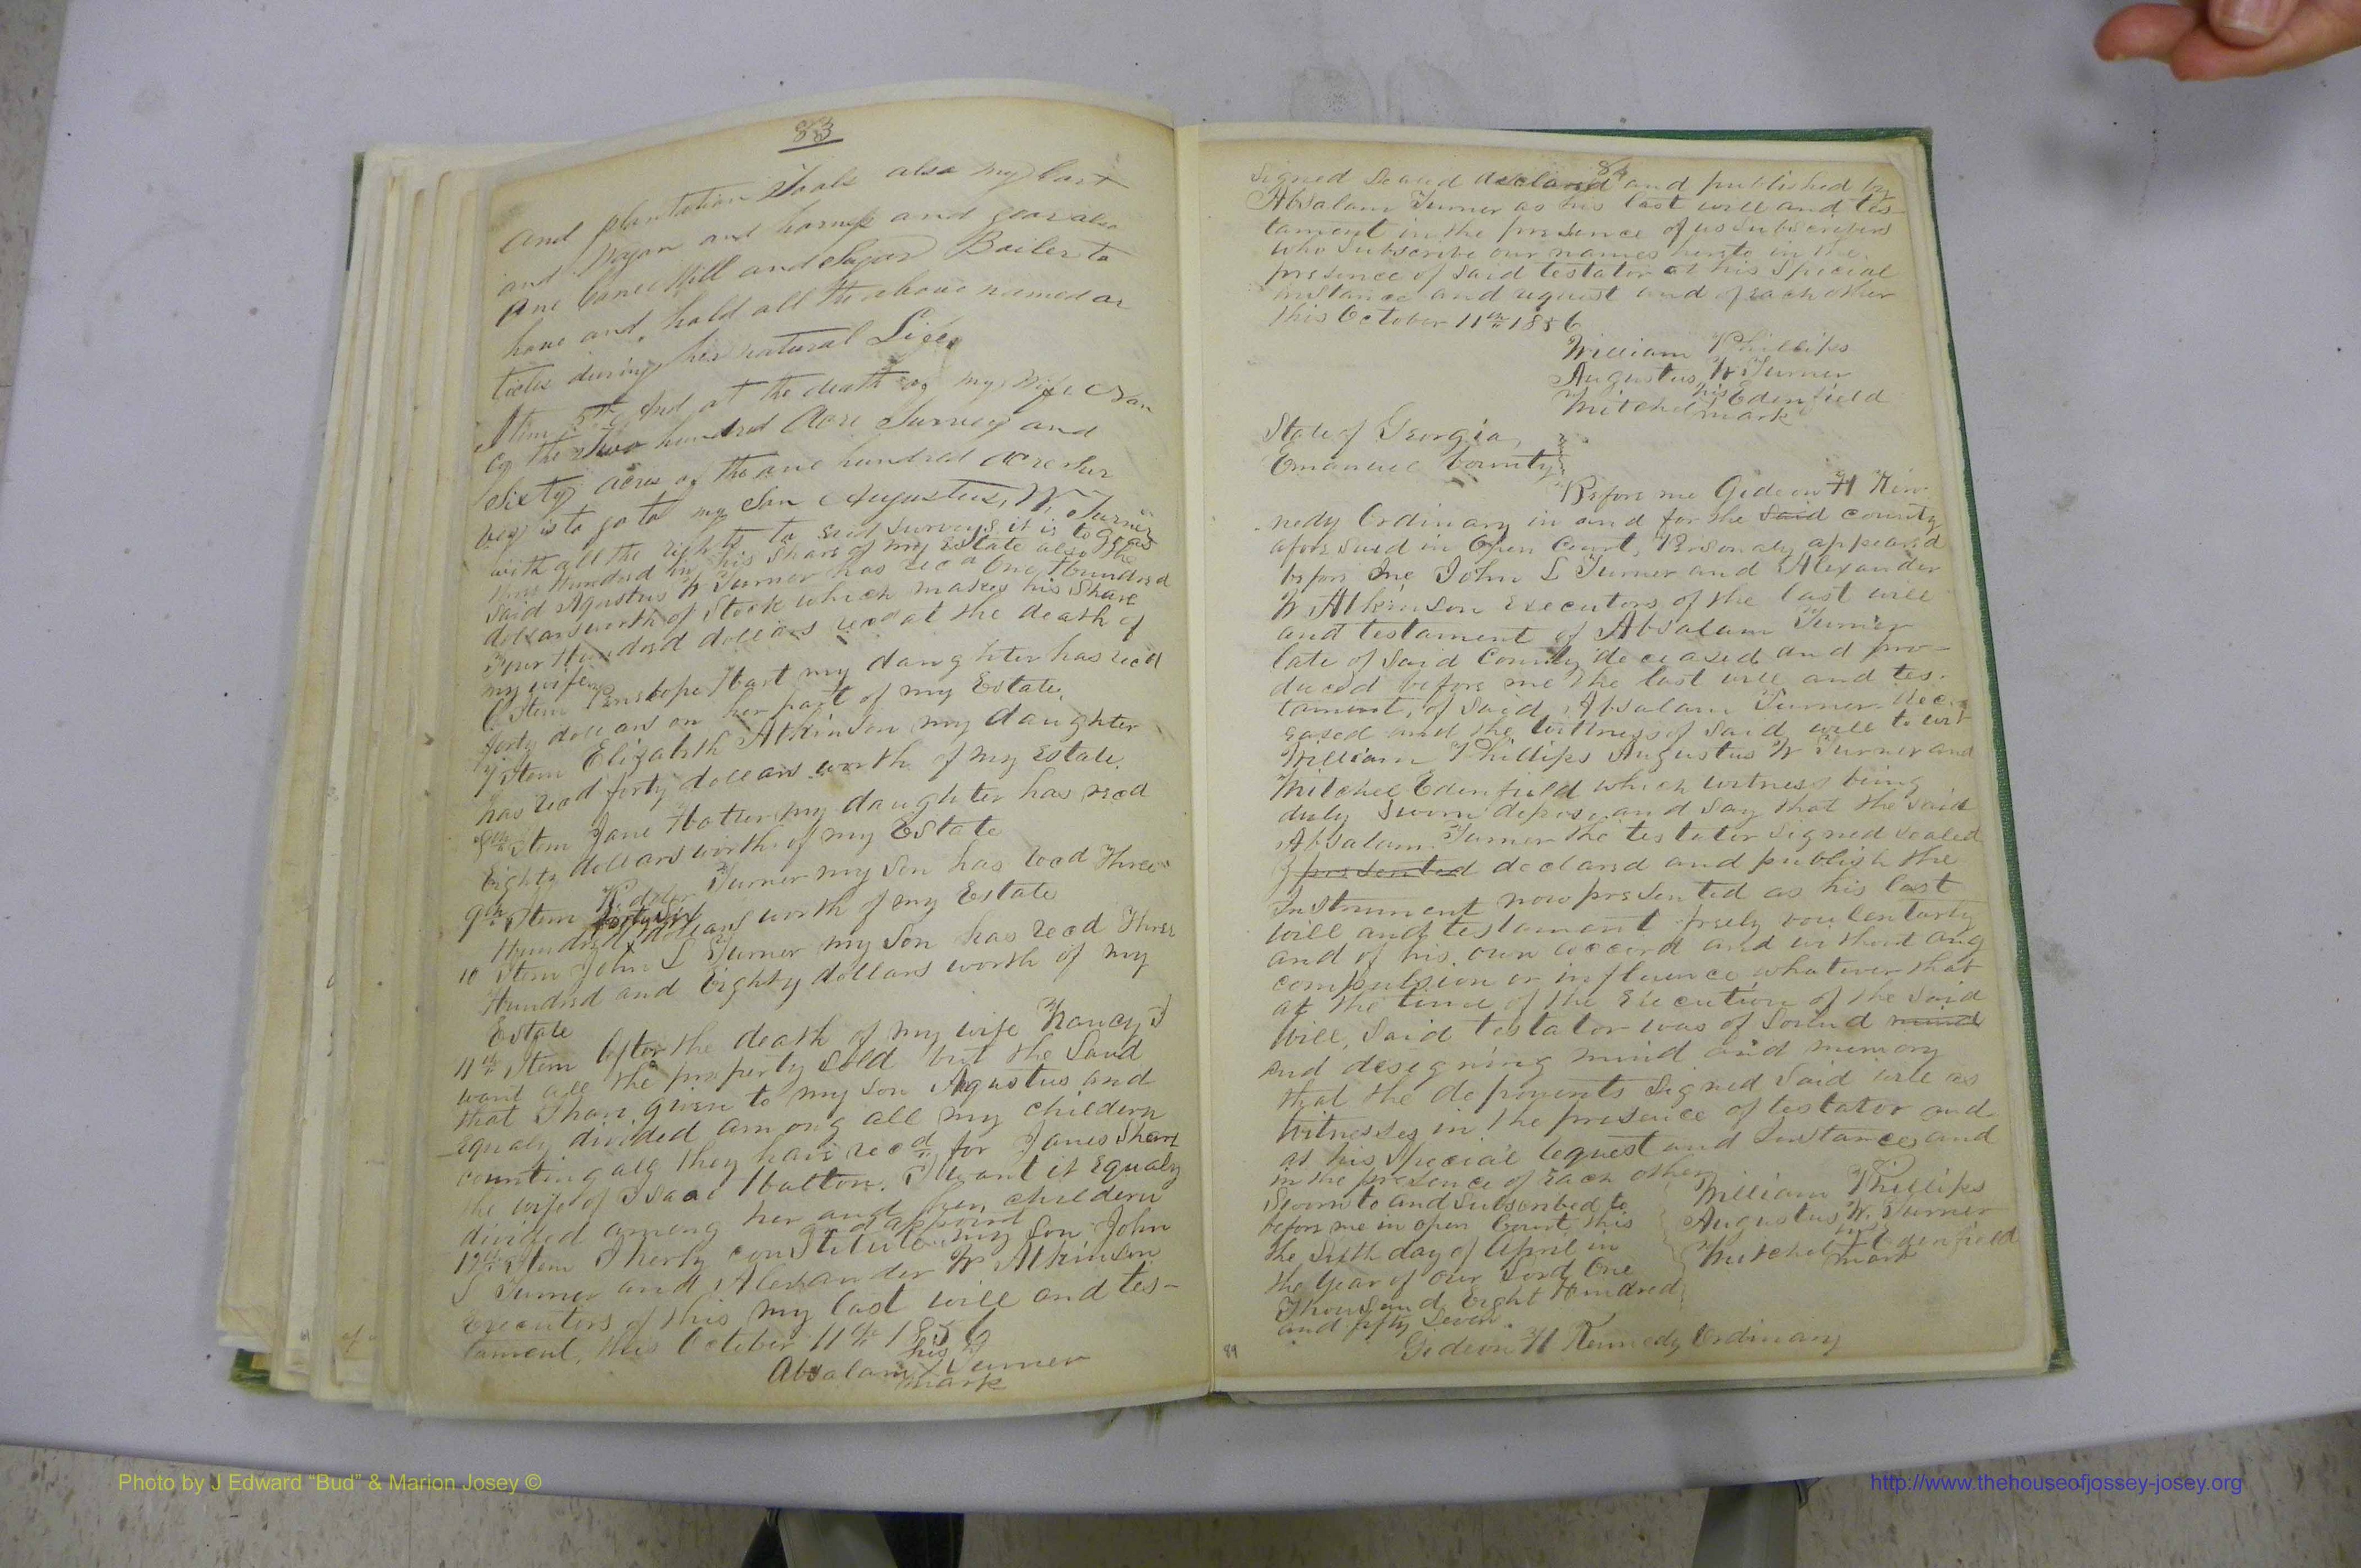 83
And plantation Tools also my Cart
and Wagon and harness and gear also
one Cane Mill and Sugar Boiler to
have and hold all the above named ar
ticles during her natural Life
Item 5th And at the death of my Wife Nan
cy the two hundred Acre Survey and
Sixty acres of the one hundred acre Sur
vey is to go to my Son Augustus, W, Turner
with all the rights to said surveys it is to go as
three Hundred in his share of my Estate also the
said Agustus W Turner has recd One Hundred
dollars worth of Stock which makes his Share
Four Hundred dollars recd at the death of
my wife
6 Item Penelope Hart my daughter has recd
forty dollars on her part of my Estate,
7 Item Elizabeth Atkinson my daughter
has recd forty dollars worth of my Estate.
8th Item Jane Hatten my daughter has recd
Eighty dollars worth of my Estate
9th Item Turner my Son has recd Three
Hundred dollars worth of my Estate
10 Item John L Turner my Son has recd Three
Hundred and Eighty dollars worth of my
Estate
11th Item after the death of my wife Nancy I
want all the property Sold but the Land
that I have given to my Son Agustus and
equaly divided among all my childern
counting all they have recd for Janes Share
the wife of Isaac Hatton. I want it Equaly
divided among her and her childern
and appoint
12th Item I herby constitute my Son John
L Turner and Alexander W Atkinson
Executors of this my last will and tes-
tament, this October 11th 1856
his
Absalam X Turner
mark
84
Signed Seaed declared and published by
Absalam Turner as his last will and tes-
tament in the presence of us Subscribers
who Subscribe our names hereto in the
presence of said testator at his Special
instance and request and of each other
this October 11th 1856
William Phillips
Augustus W Turner
his
Mitchel Edenfield
mark
State of Georgia,
Emanuel County
Before me Gideon H Ken
nedy Ordinary in and for the said county
aforesaid in Open Court, Personaly appeared
before me John L Turner and Alexander
W Atkinson Executors of the last will
and testament of Absalam Turner
late of said County deceased and pro-
duced before me the last will and tes-
tament, of Said Absalam Turner dece
eased and the wittness of Said will to wit
William Phillips Augustus W Turner and
Mitchel Edenfield which witness being
duly Sworn depose and say that the said
Absalam Turner the testator signed sealed
presented declared and publish the
Instrument now presented as his last
will and testament freely voulentarly
and of his own accord and without any
compulsion or influence whatever that
at the time of the Execution of the said
Will, Said testator was of Sound mind
and designing mind and memory
that the deponents Signed Said will as
Witnesses in the presence of testator and
at his Special request and Instance and
in the presence of each other
Sworn to and Subscribed to
before me in open Court this
the Sixth day of April in
the Year of Our Lord One
Thousand Eight Hundred
and fifty Seven.
William Phillips
Augustus W. Turner
his
Mitchel Edenfield
mark
Gideon H Kennedy Ordinary
89
Photo by J Edward “Bud” & Marion Josey ©
http://www.thehouseofjossey-josey.org